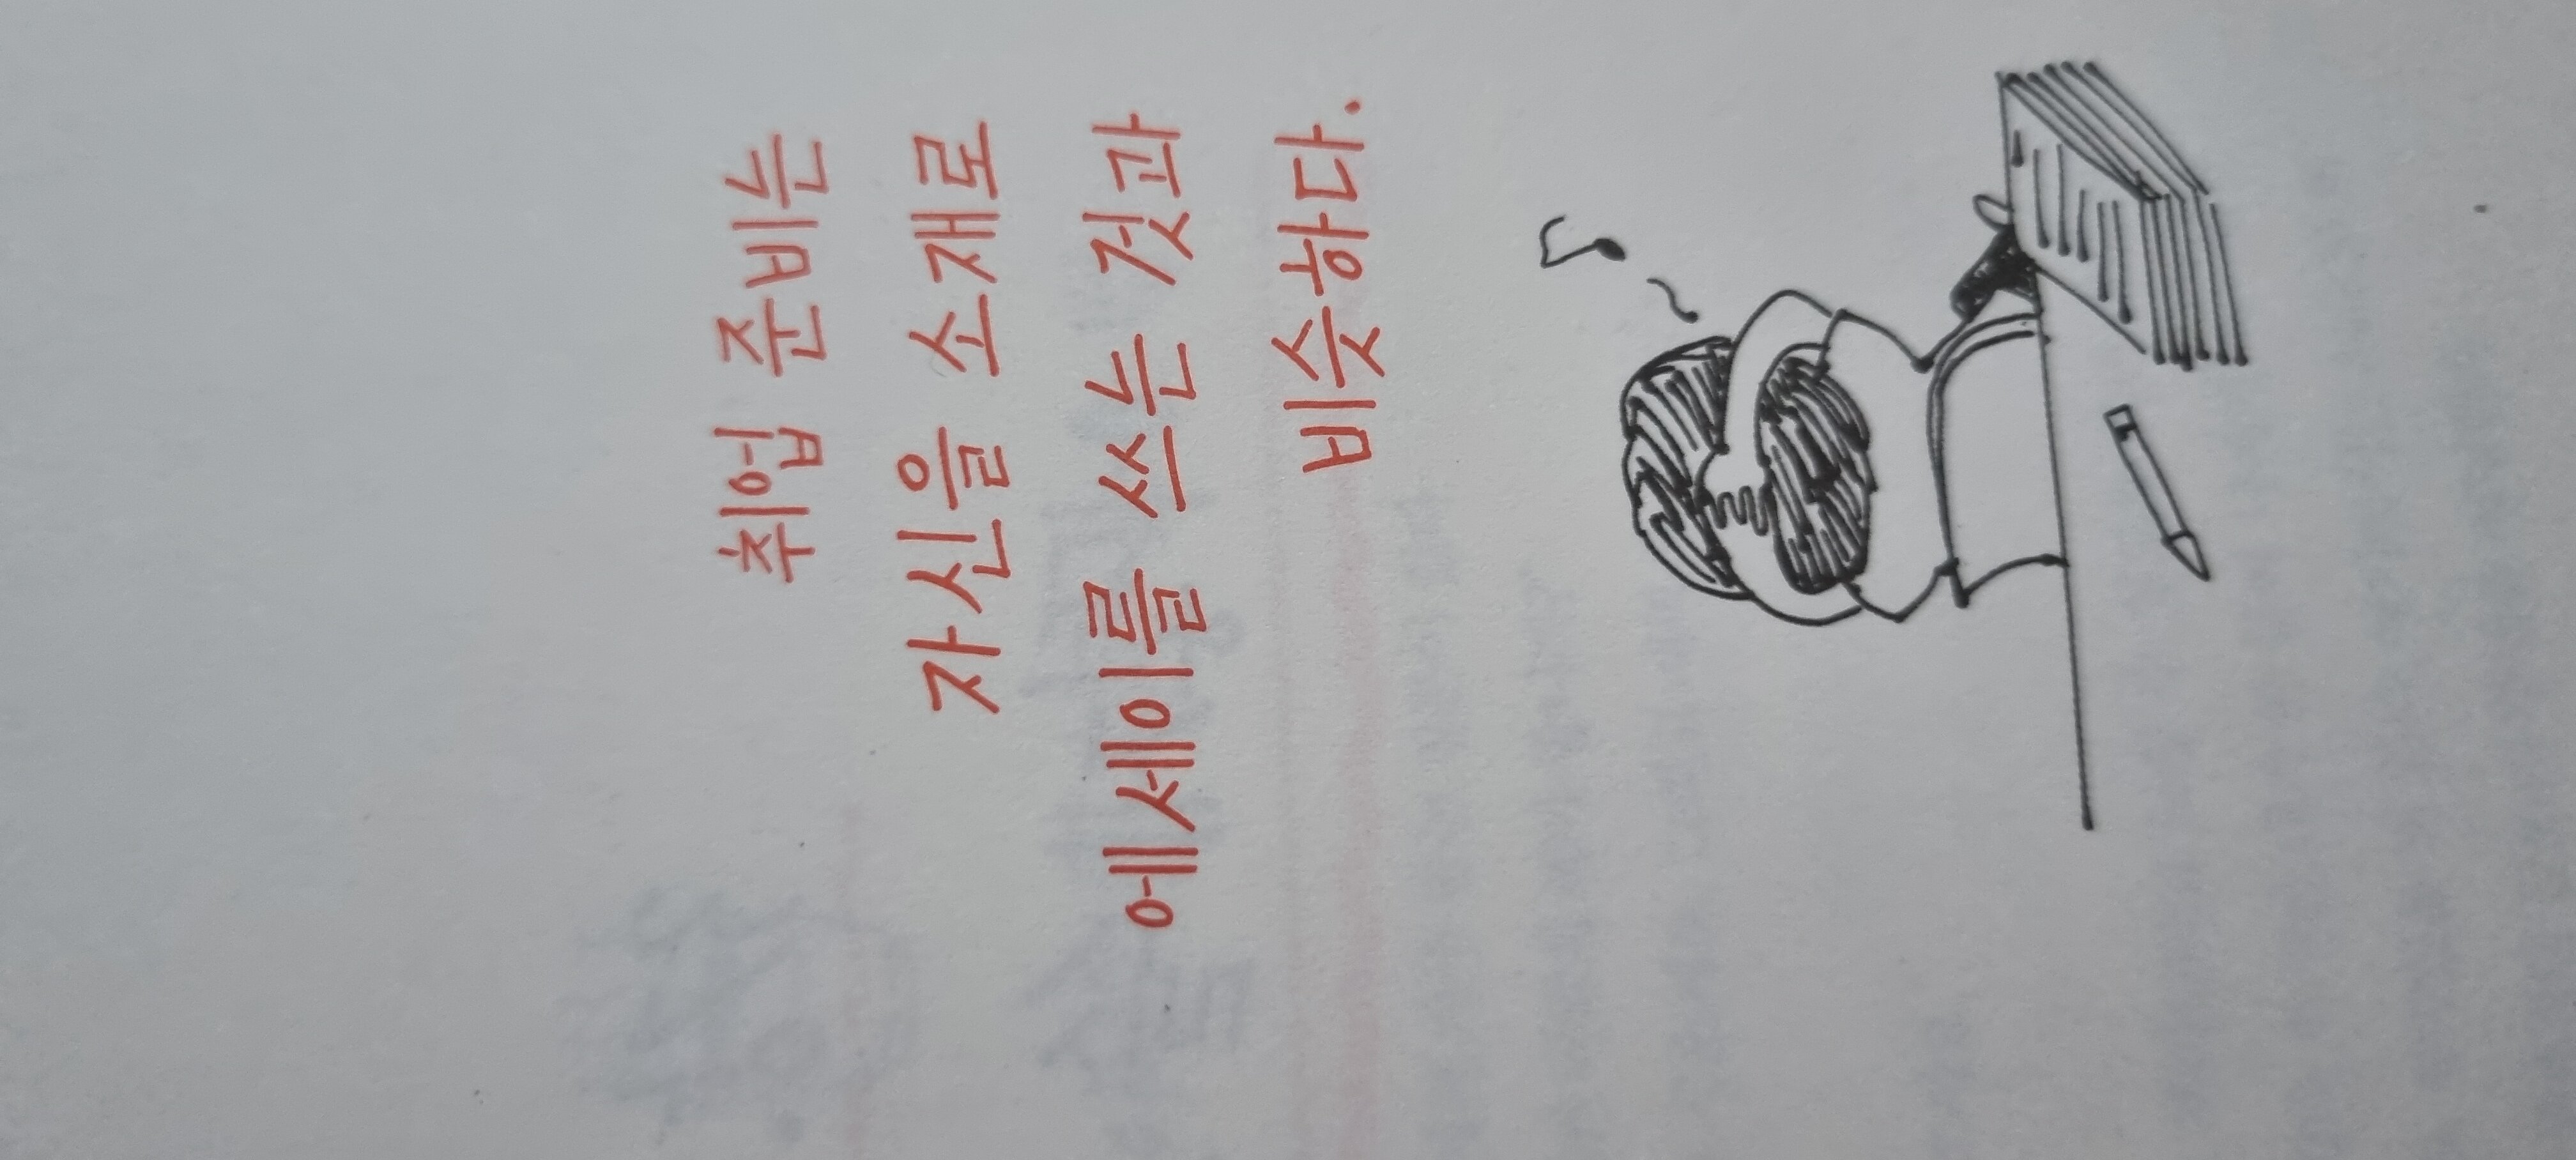 취업 준비는
자신을 소재로
에세이를 쓰는 것과
비슷하다.